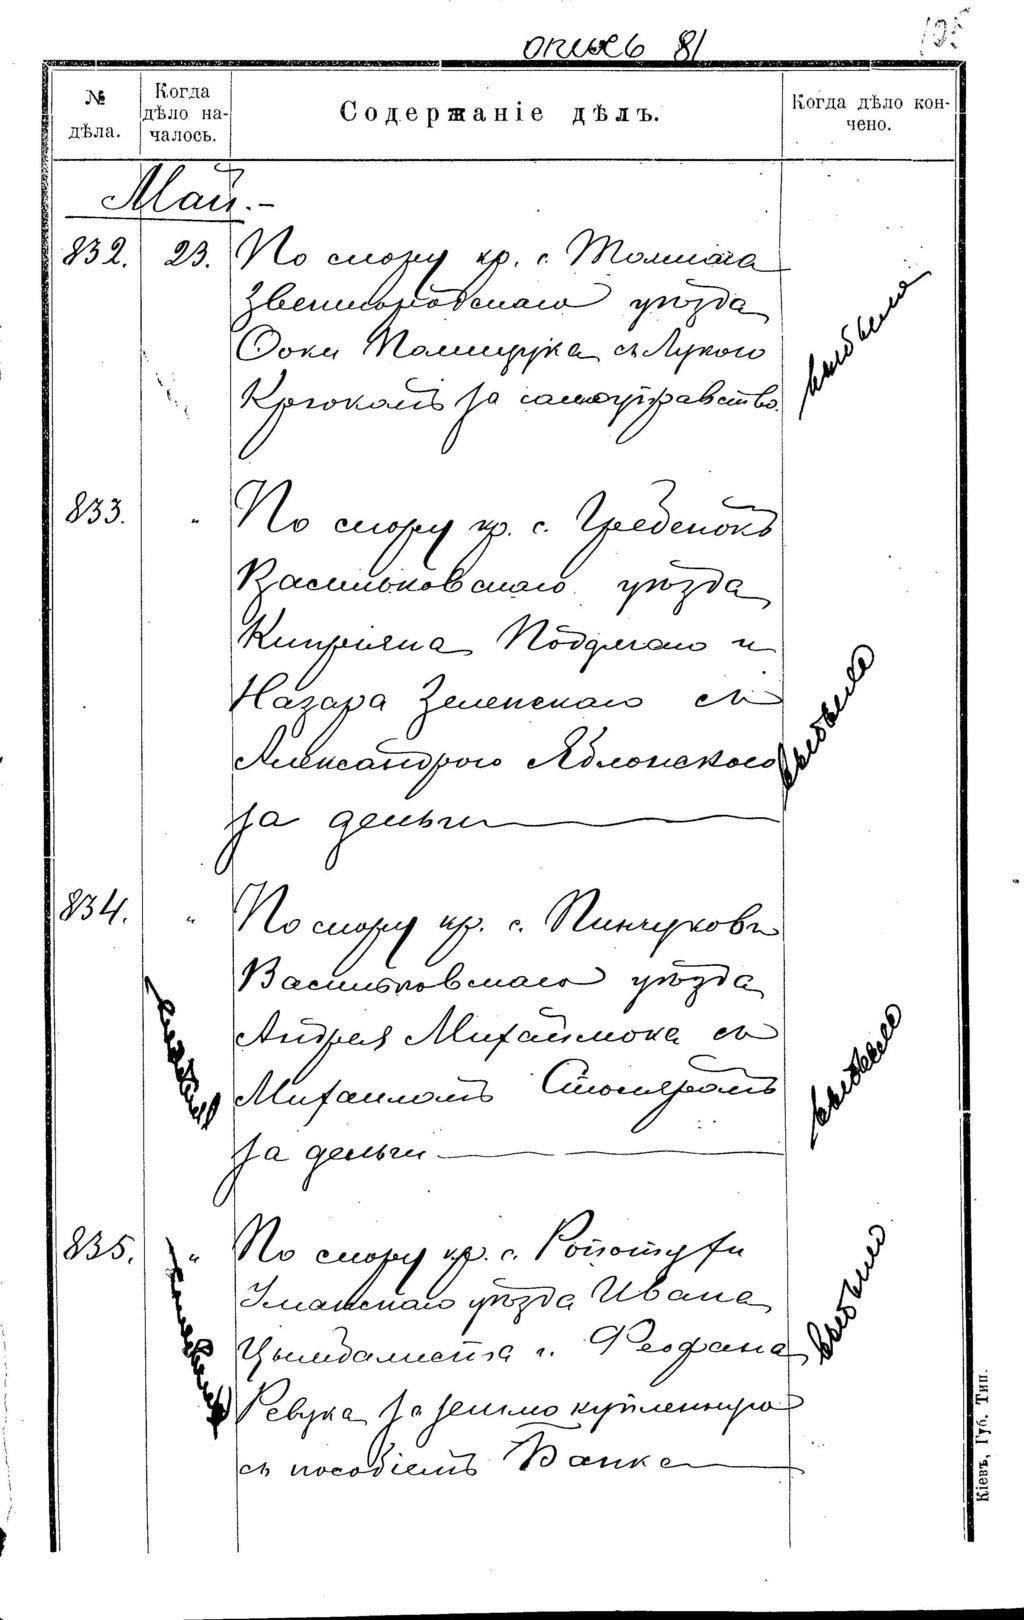 опись 81
195
№ дѣла.
Когда дѣло началось.
Содержаніе дѣлъ.
Когда дѣло кончено.
Май.-
832. 23. По спору кр. с. Толмача
Звенигородскаго уѣзда
Фоки Полищука съ Лукою
Крюкомъ за самоуправство.
выбыло
833. " По спору кр. с. Гребенокъ
Васильковскаго уѣзда
Кипріяна Поддумаго и
Назара Зеленскаго съ
Александрою Яблонскою
за деньги
выбыло
834. " По спору кр. с. Пинчуковъ
Васильковскаго уѣзда
Андрея Михайлюка съ
Михаиломъ Столяромъ
за деньги
выбыло
835. " По спору кр. с. Ропотухи
Уманскаго уѣзда Ивана
Цымбалиста и Феофана
Ревука за землю купленную
съ пособіемъ Банка
выбыло
Кіевъ, Губ. Тип.